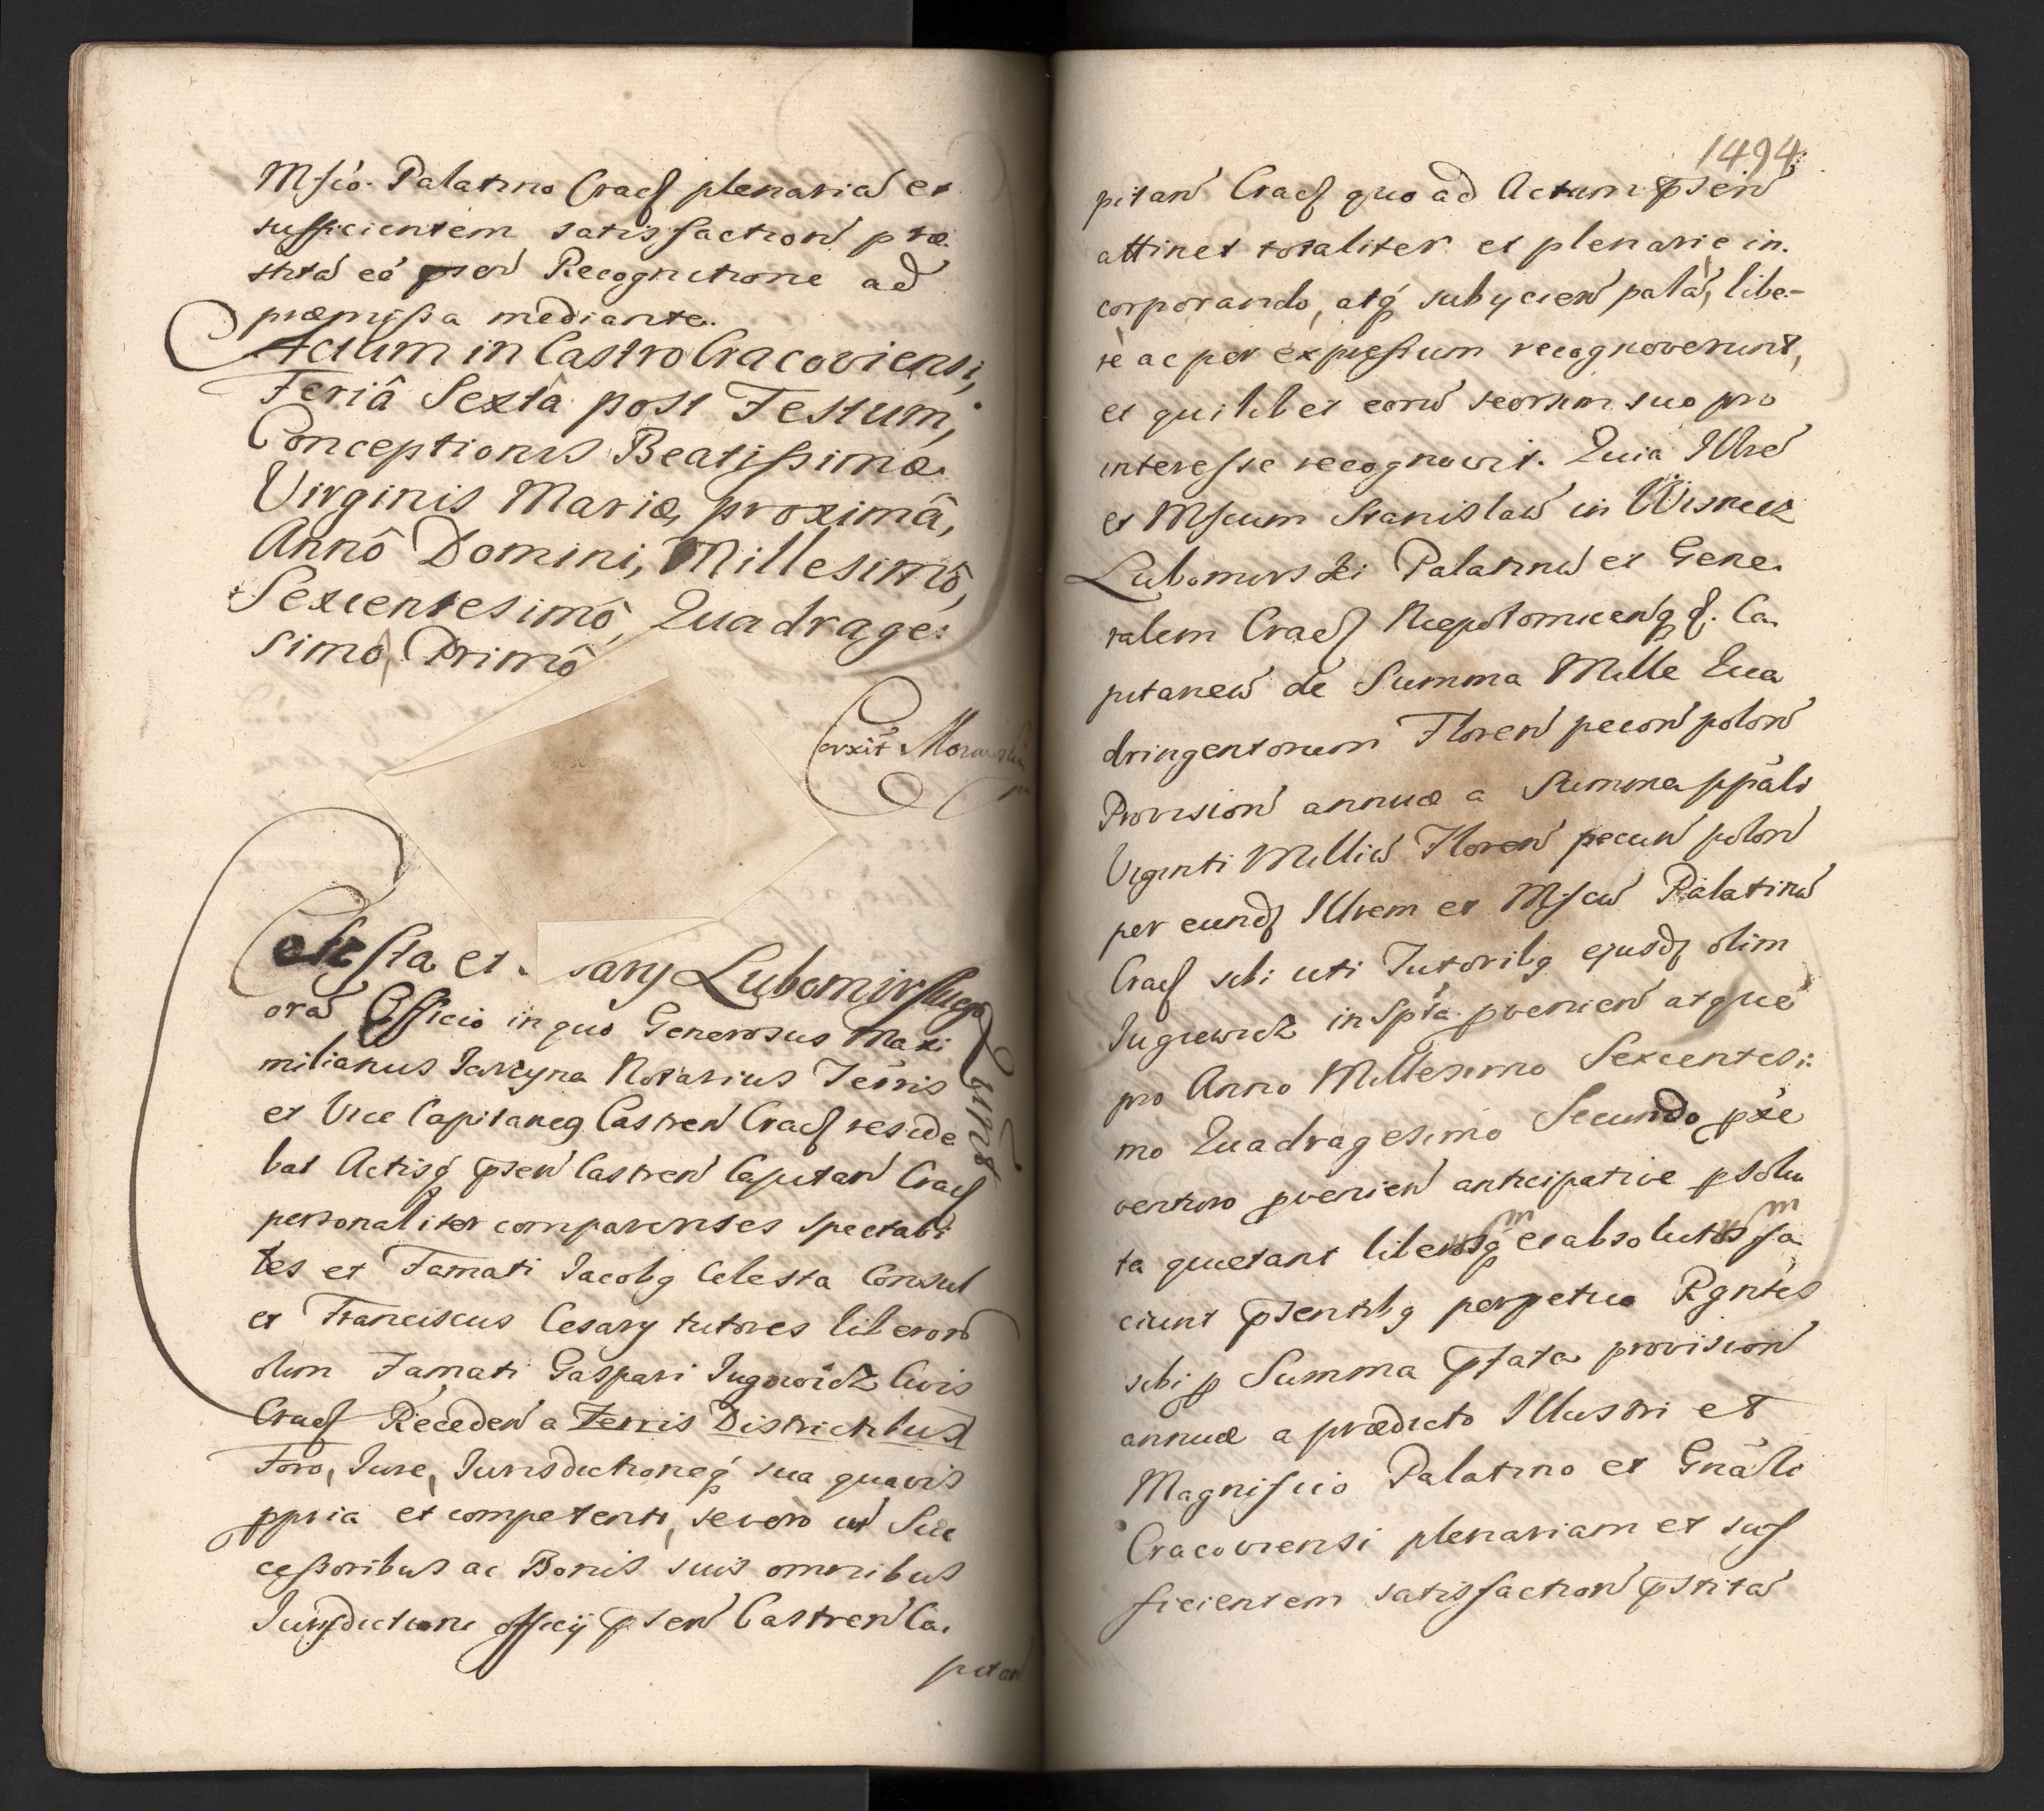 Mfico Palatino Cracꝭ plenariā et
sufficientem satisfactionē præ
stitā eâ p̄sen̄ Recognitione ad
præmißa mediante.
Actum in Castro Cracoviensi,
Feriâ Sextâ post Festum,
Conceptionis Beatißimæ
Virginis Mariæ, proximâ,
Annô Domini, Millesimô,
Sexcentesimô, Quadrage:
simo, Primô
Corxit
Celesta et sary Lubomirskiego
quietat
orā Officio in quo Generosus Maxi
milianus Jarcyna Notarius Terris
et Vice Capitaneꝯ Castren̄ Cracꝭ reside
bat Actisq́ꝫ p̄sen̄ Castren̄ Capitan̄ Cracꝭ
personaliter comparentes spectabi
les et Famati Jacobꝯ Celesta Consul
et Franciscus Cesary tutores liberorū
olim Famati Gaspari Jugowicz Civis
Cracꝭ Receden̄ a Terris Districtibus
Foro, Jure, Jurisdictioneq́ꝫ sua quavis
ꝓpria et competenti, severo cū Suc
ceßoribus ac Bonis suis omnibus
Jurisdictioni officÿ p̄sen̄ Castren̄ Ca.
pitan̄
1494
pitan̄ Cracꝭ quo ad Actum p̄sen̄
attinet totaliter et plenarie in.
corporando, atq́ꝫ subÿcien̄ palā, libe-
rè ac per expreßum recognoverunt,
et quilibet eorū seorsim suo pro
intereße recognovit. Quia Illrē
et Mficum Stanislaū in Wisnicz
Lubomirski Palatinū et Gene.
ralem Cracꝭ Niepolomicen̄qꝫ ꝭ. Ca.
pitaneū de Summa Mille Qua
dringentorum Floren̄ pecun̄ polon̄
Provision̄ annuæ a Summa ppāli
Viginti Milliū Floren̄ pecun̄ polon̄
per eundꝫ Illrem et Mficū Palatinū
Cracꝭ sibi uti Tutoribꝯ ejusdꝫ olim
Jugiewicz inSp̄ta ꝓvenien̄ atque
pro Anno Millesimo Sexcentesi:
mo Quadragesimo Secundo p̄xe
venturo ꝓvenien̄ anticipative ꝑsolu
ta quietant liberumqꝫ et absolutum fa
ciunt p̄sentibꝯ perpetuo Rgntes
sibi ꝓ Summa p̄fata provision̄
annuæ a prædicto Illustri et
Magnifico Palatino et Gnāli
Cracoviensi plenariam et suf
ficientem satisfaction̄ p̄stitā